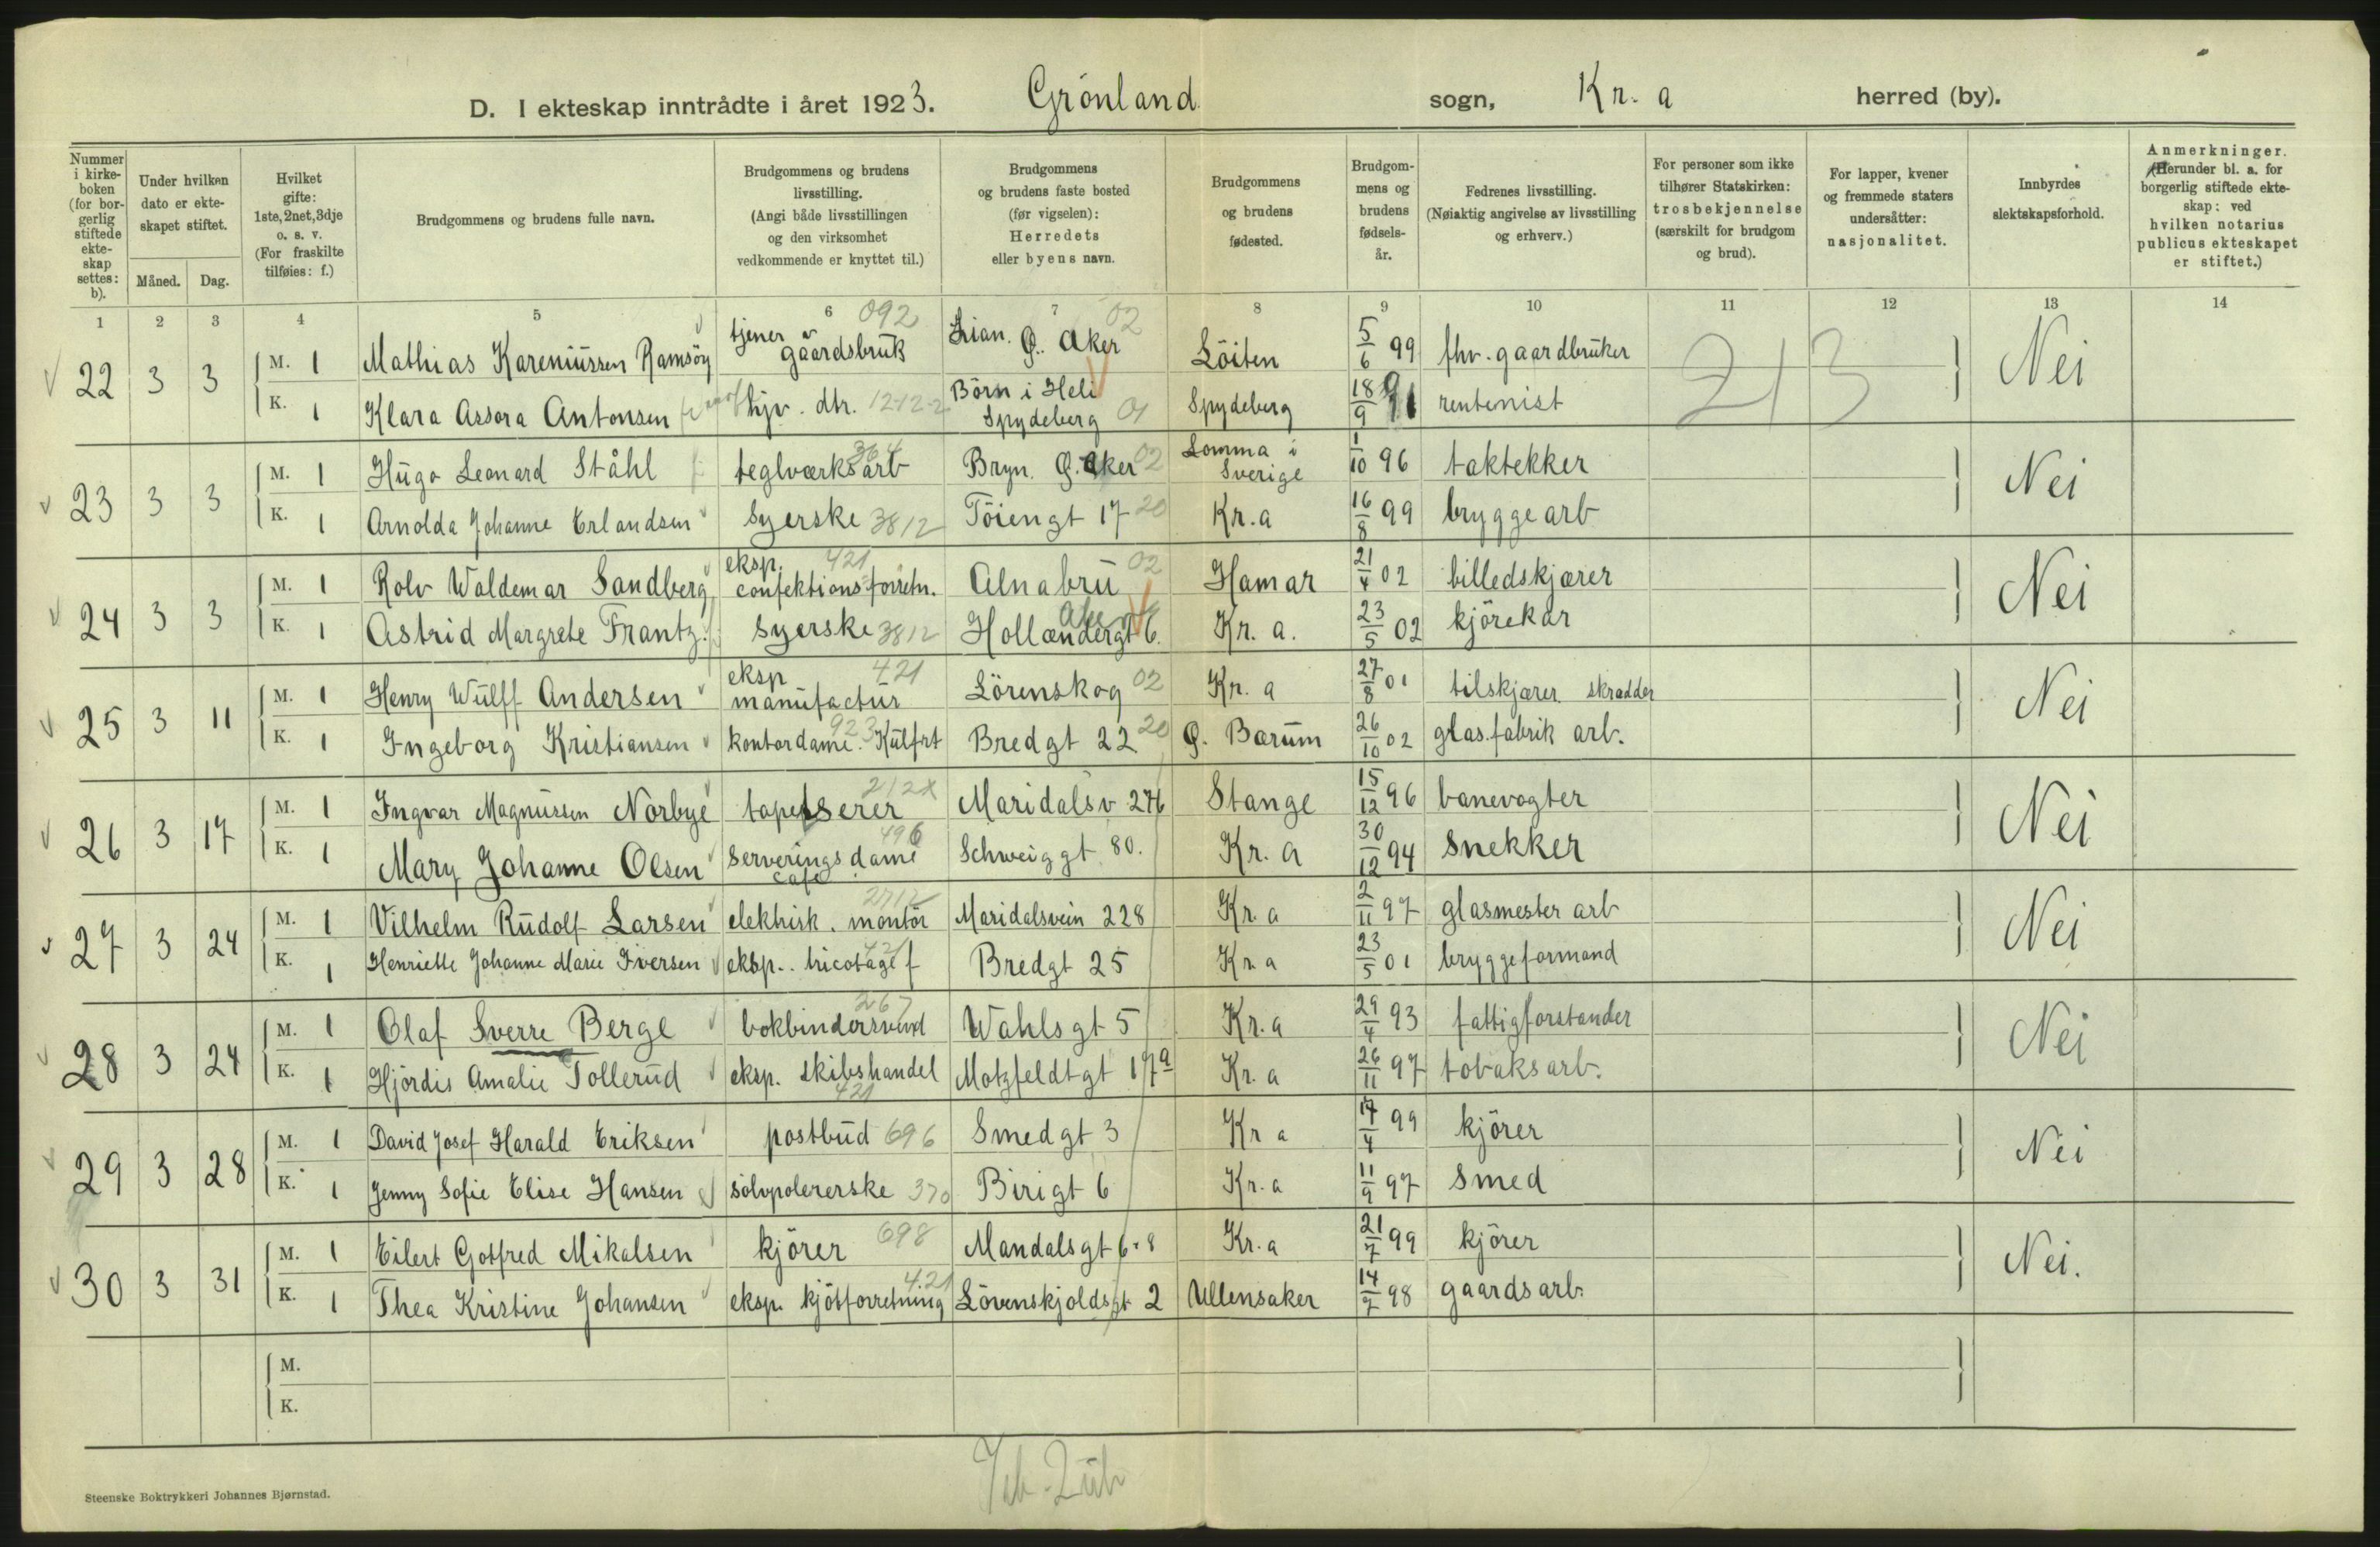 D. I ekteskap inntrådte i året 1923. Grönland sogn, Kr. a herred (by).
Nummer i kirkeboken (for borgerlig stiftede ekteskap settes: b).
Under hvilken dato er ekteskapet stiftet.
Måned. Dag.
Hvilket gifte: 1ste, 2net, 3dje o. s. v. (For fraskilte tilføies: f.)
Brudgommens og brudens fulle navn.
Brudgommens og brudens livsstilling. (Angi både livsstillingen og den virksomhet vedkommende er knyttet til.)
Brudgommens og brudens faste bosted (før vigselen): Herredets eller byens navn.
Brudgommens og brudens fødested.
Brudgommens og brudens fødselsår.
Fedrenes livsstilling. (Nøiaktig angivelse av livsstilling og erhverv.)
For personer som ikke tilhører Statskirken: trosbekjennelse (særskilt for brudgom og brud).
For lapper, kvener og fremmede staters undersåtter: nasjonalitet.
Innbyrdes slektskapsforhold.
Anmerkninger. (Herunder bl. a. for borgerlig stiftede ekteskap: ved hvilken notarius publicus ekteskapet er stiftet.)
1 2 3 4 5 6 7 8 9 10 11 12 13 14
22 3 3 M. 1 Mathias Kareniussen Ramsöy tjener v gaardsbruk 092 Lian. Ø. Aker 02 Löiten 5/6 99 fhv. gaardbruker 213 Nei
K. 1 Klara Assora Antonsen hjv. dtr. 12-12-2 Börn i Heli Spydeberg 01 Spydeberg 18/9 91 rentenist
23 3 3 M. 1 Hugo Leonard Ståhl teglværksarb 364 Bryn. Ø. Aker 02 Lomma i Sverige 1/10 96 taktekker Nei
K. 1 Arnolda Johanne Erlandsen Syerske 3812 Töiengt 17 20 Kr.a 16/8 99 bryggearb
24 3 3 M. 1 Rolv Waldemar Sandberg eksp. confektionsforretn. 421 Alnabru 02 Aker Hamar 21/4 02 billedskjærer Nei
K. 1 Astrid Margrete Frantz. syerske 3812 Hollændergt 6. Kr. a. 23/5 02 kjörekar
25 3 11 M. 1 Henry Wulff Andersen eksp manufactur 421 Lörenskog 02 Kr. a 27/8 01 tilskjærer. skradder Nei
K. 1 Ingeborg Kristiansen kontordame. Kulfrt 923 Bredgt 22 20 Ø. Bærum 26/10 02 glas.fabrik arb.
26 3 17 M. 1 Ingvar Magnussen Norbye tapetserer 212x Maridalsv 276 Stange 15/12 96 banevogter Nei
K. 1 Mary Johanne Olsen Serveringsdame café 496 Schweiggt 80. Kr. a 30/12 94 Snekker
27 3 24 M. 1 Vilhelm Rudolf Larsen elektrisk. montör 2712 Maridalsvein 228 Kr. a 2/11 97 glasmester arb Nei
K. 1 Henriette Johanne Marie Iversen eksp.. tricotage f 421 Bredgt 25 Kr. a 23/5 01 bryggeformand
28 3 24 M. 1 Olaf Sverre Berge bokbindersvend 267 Wahlsgt 5 Kr. a 29/4 93 fattigforstander Nei
K. 1 Hjördis Amalie Tollerud eksp. skibshandel 421 Motzfeldtgt 17a Kr. a 26/11 97 tobaksarb.
29 3 28 M. 1 David Josef Harald Eriksen postbud 696 Smedgt 3 Kr a 17/4 99 kjörer Nei
K. 1 Jenny Sofie Elise Hansen sölvpolererske 370 Birigt 6 Kr. a 11/9 97 Smed
30 3 31 M. 1 Eilert Gotfred Mikalsen kjörer 698 Mandalsgt 6-8 Kr. a 21/7 99 kjörer Nei.
K. 1 Thea Kristine Johansen eksp. kjötforretning 421 Lövenskjoldsgt 2 Ullensaker 14/7 98 gaardsarb.
M.
K.
Steenske Boktrykkeri Johannes Bjørnstad.